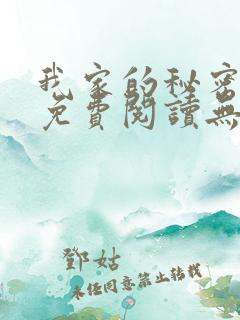 我家的秘密
免費閱讀無
鄧姑
未經同意禁止轉載